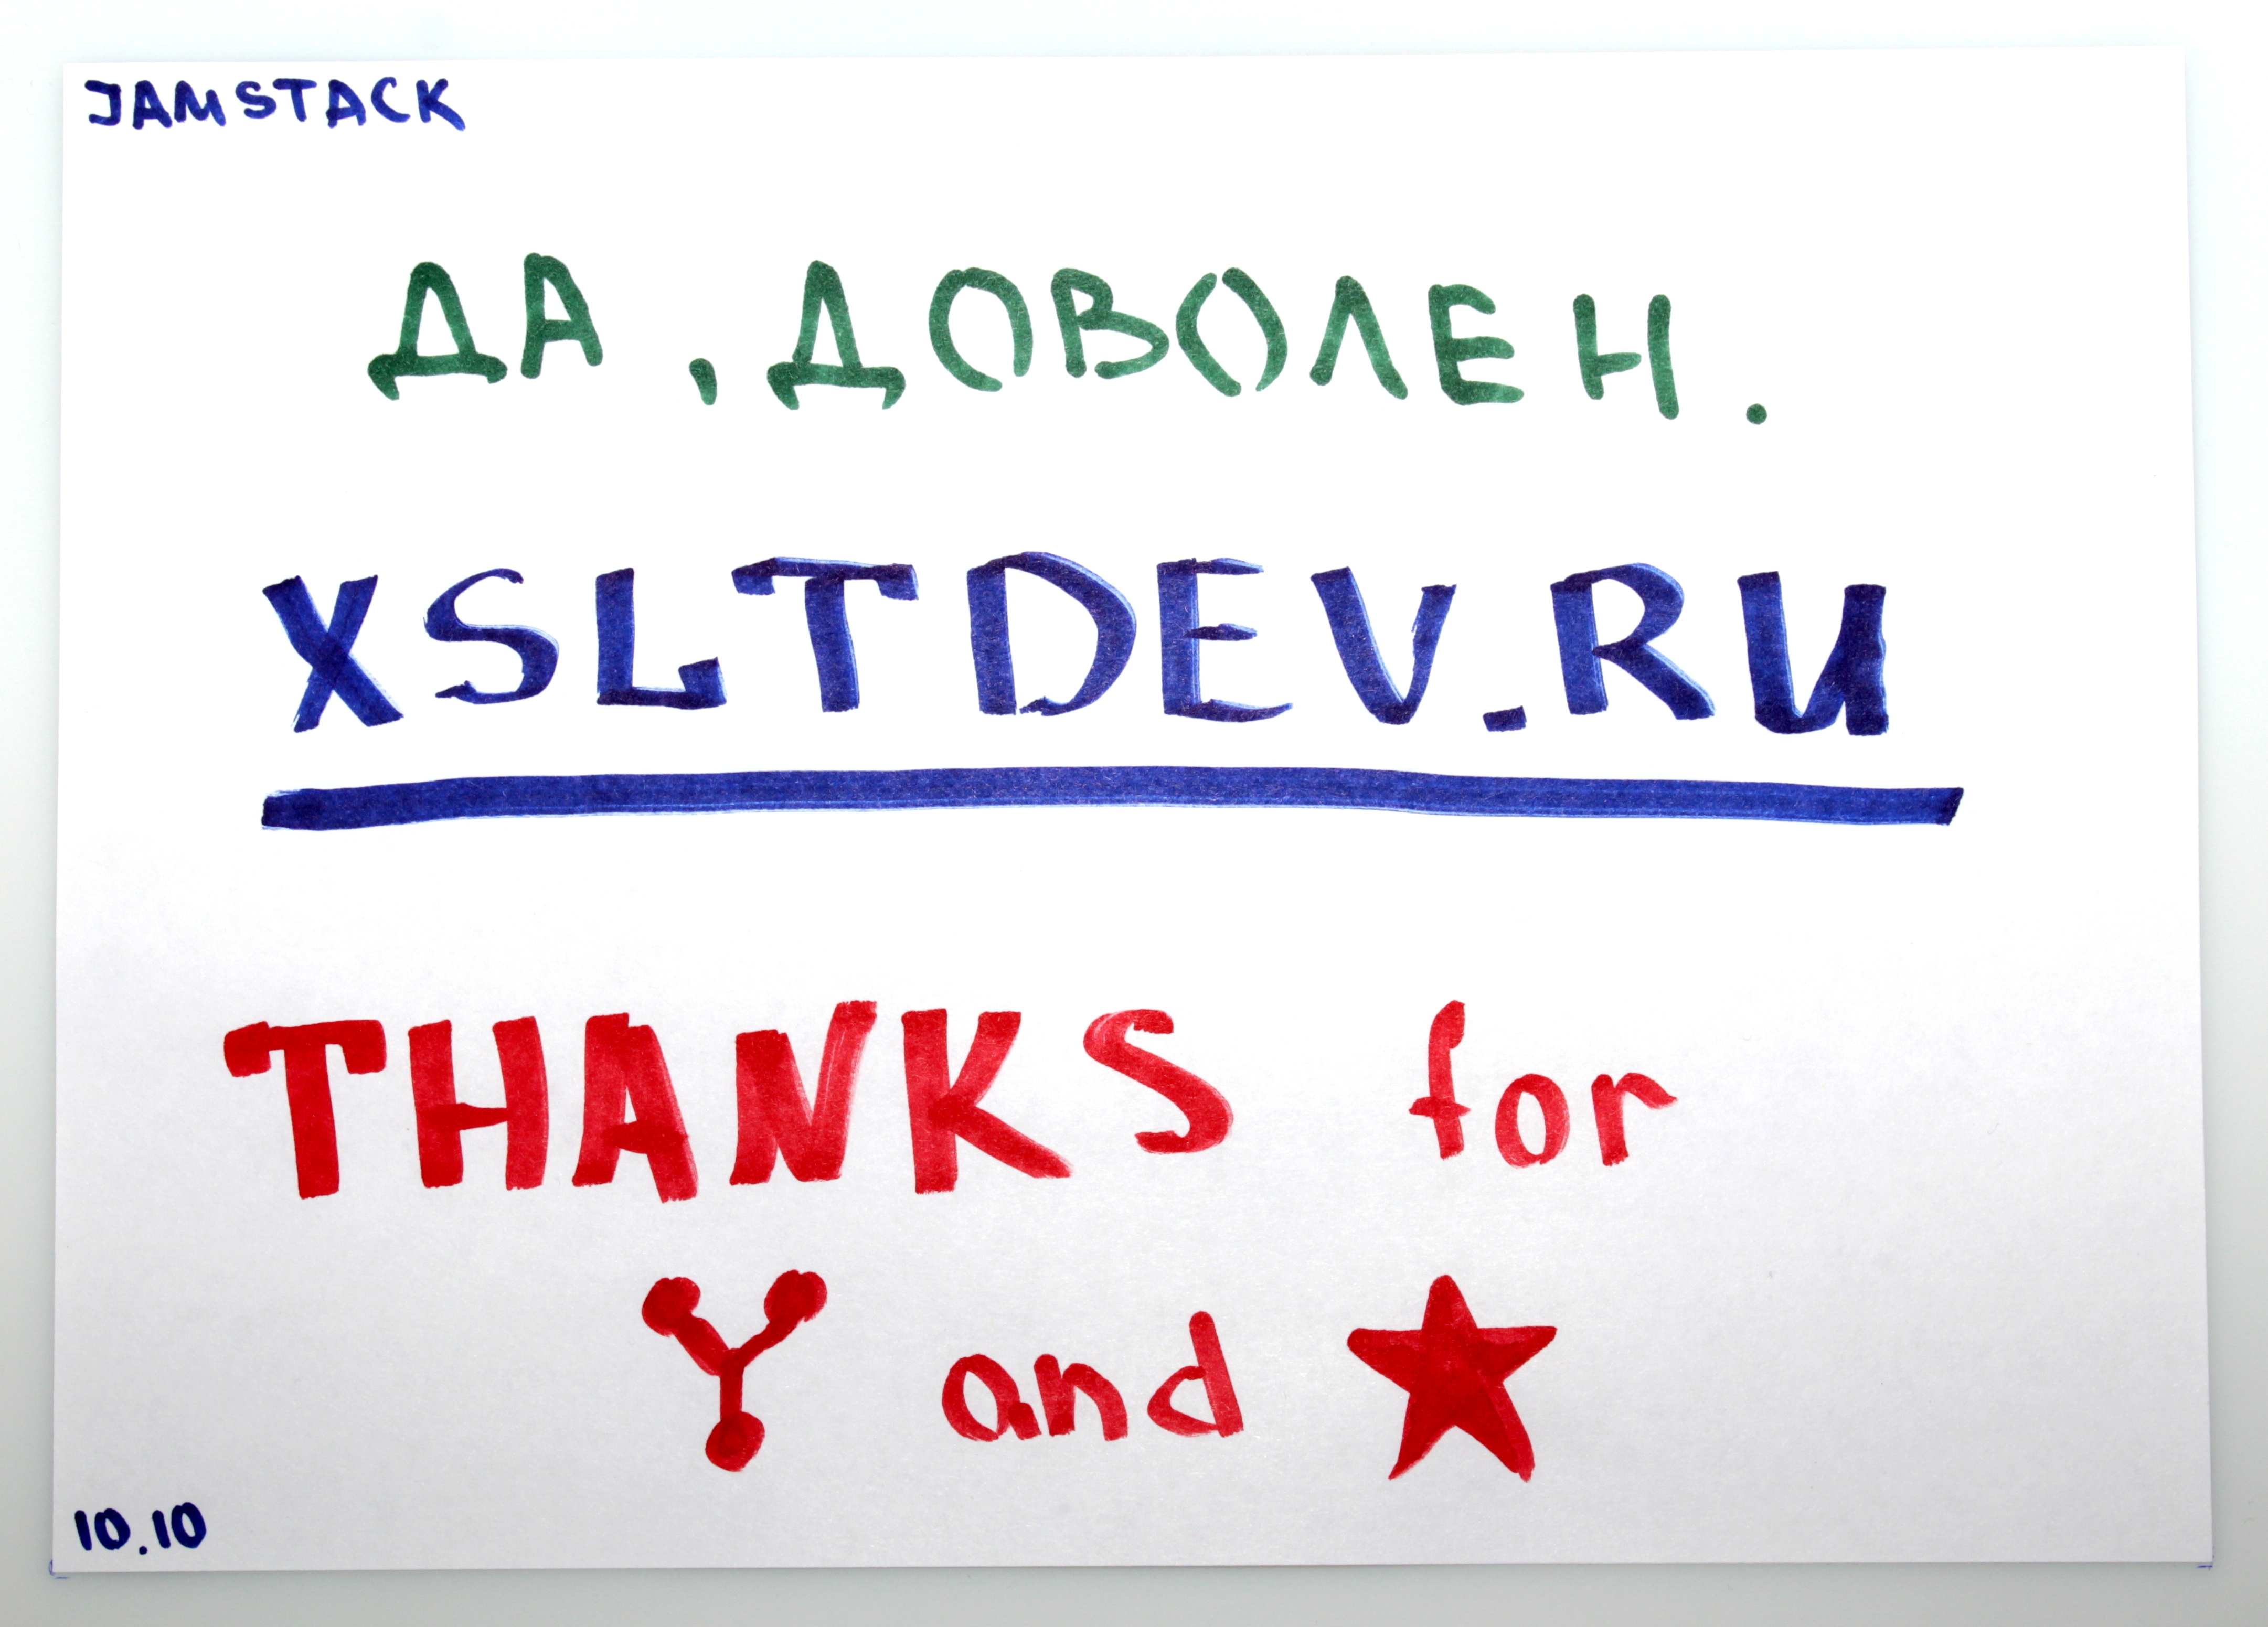 JAMSTACK
ДА, ДОВОЛЕН.
XSLTDEV.RU
THANKS for
and
10.10